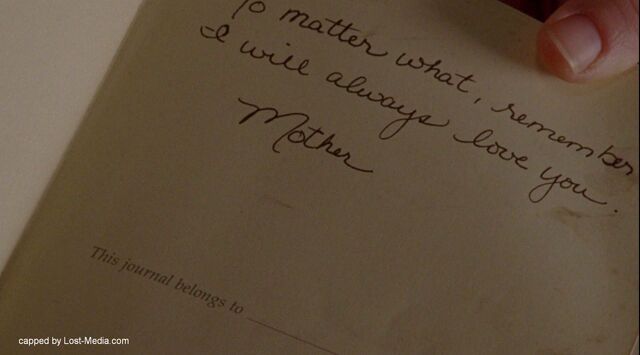 No matter what, remember
I will always love you.
Mother
This journal belongs to
capped by Lost-Media.com